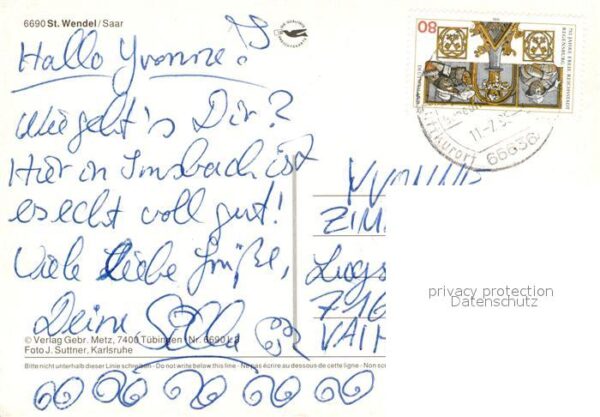 6690 St. Wendel/Saar
Hallo Yvonne!
Wie geht's Dir?
Hier in ist
es echt voll gut!
Viele liebe Grüße,
Deine Silke
© Verlag Gebr. Metz, 7400 Tübingen Nr. 6690 L2
Foto J. Suttner, Karlsruhe
Bitte nicht unterhalb dieser Linie schreiben - Do not write below this line - Ne pas écrire au dessous de cette ligne - Non sc
80
750 JAHRE FREIE REICHSSTADT
REGENSBURG
Luftkurort
66636
YVONNE
ZIM
716
VAIH
privacy protection
Datenschutz